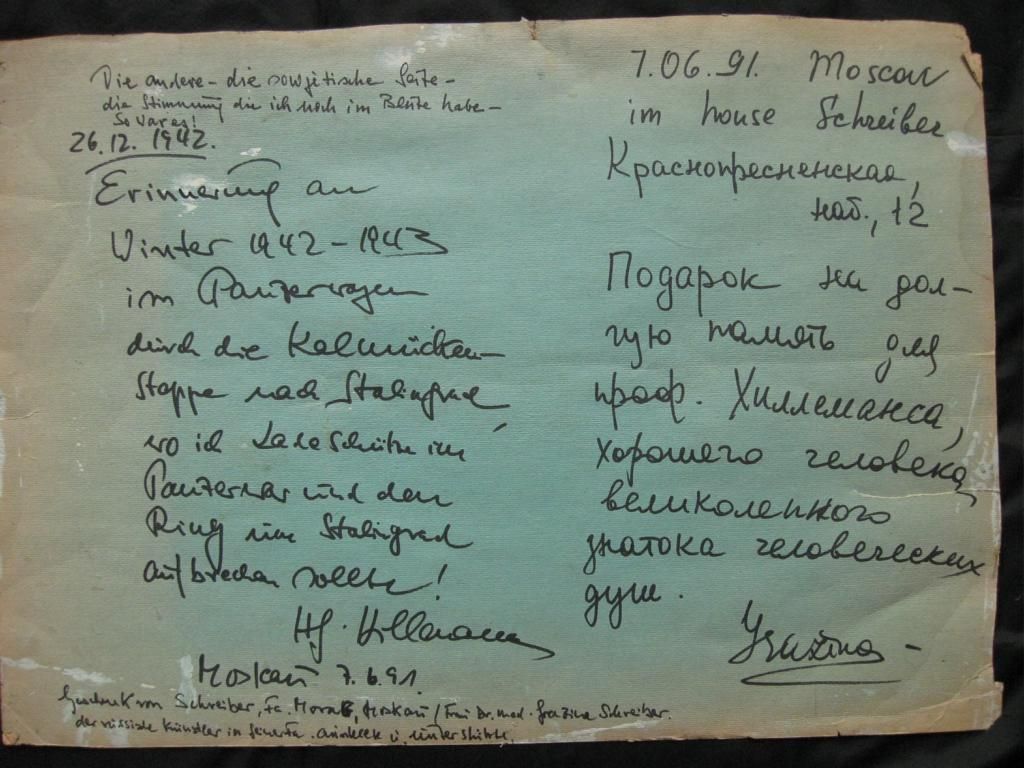 Die andere – die sowjetische Seite –
die Stimmung die ich noch im Blute habe –
So war es!
26.12. 1942.
Erinnerung an
Winter 1942 – 1943
im Panzerwagen
durch die Kalmücken–
Steppe nach Stalingrad,
wo ich Ladeschütze im
Panzer war und den
Ring um Stalingrad
aufbrechen sollte!
Moskau 7.6.91.
Geschenk von Schreiber, Fa. Moskau / Frau Dr. med. Grazina Schreiber.
der russische Künstler in seiner Fa. u. unterstützte.
7.06.91. Moscow
im house Schreiber
Краснопресненская,
наб., 12
Подарок на дол–
гую память для
проф. Хиллеманса,
хорошего человека,
великолепного
знатока человеческих
душ.
Gražina –